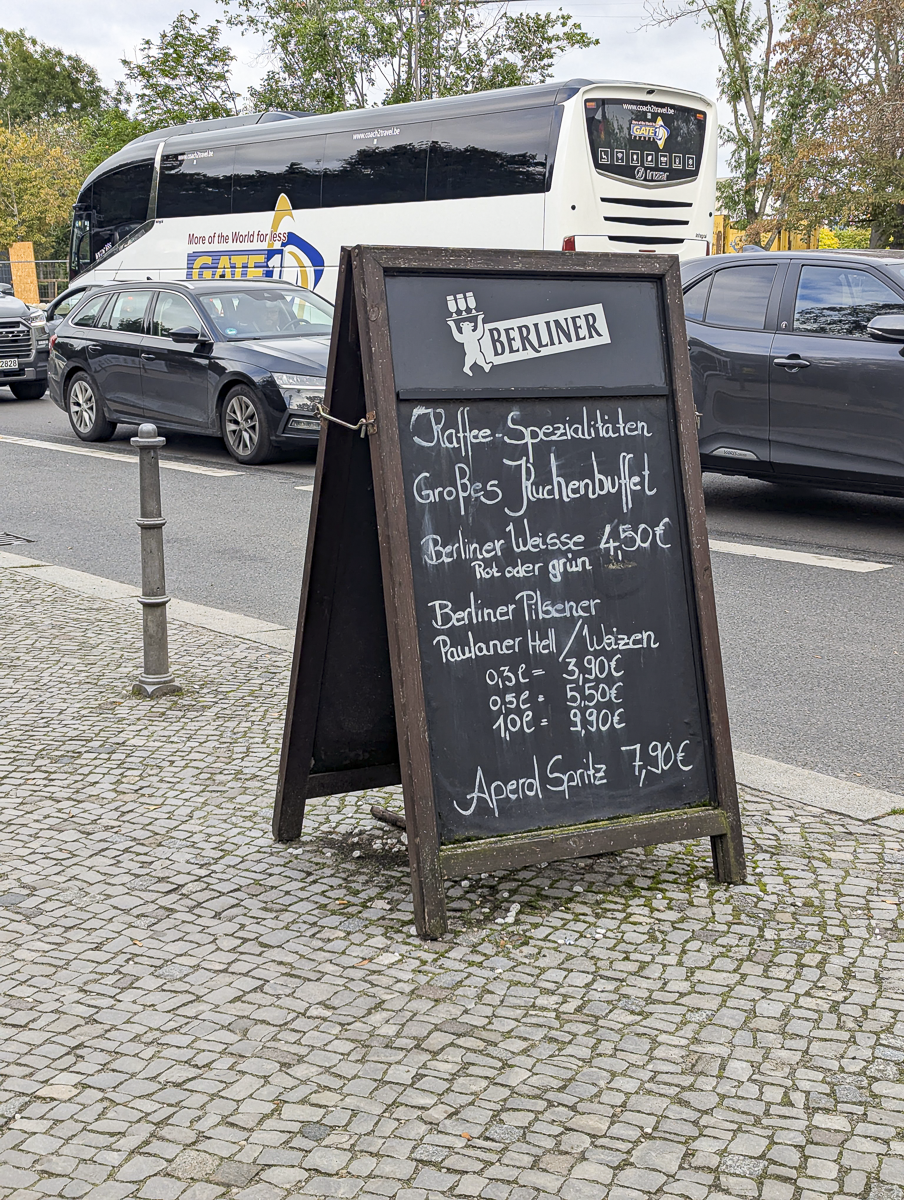 www.coach2travel.be
www.coach2travel.be
www.coach2travel.be
GATE 1
TRAVEL
frizzar
More of the World for less
GATE 1
2828
BERLINER
Kaffee-Spezialitäten
Großes Kuchenbuffet
Berliner Weisse 4,50€
Rot oder grün
Berliner Pilsener
Paulaner Hell / Weizen
0,3l = 3,90€
0,5l = 5,50€
1,0l = 9,90€
Aperol Spritz 7,90€